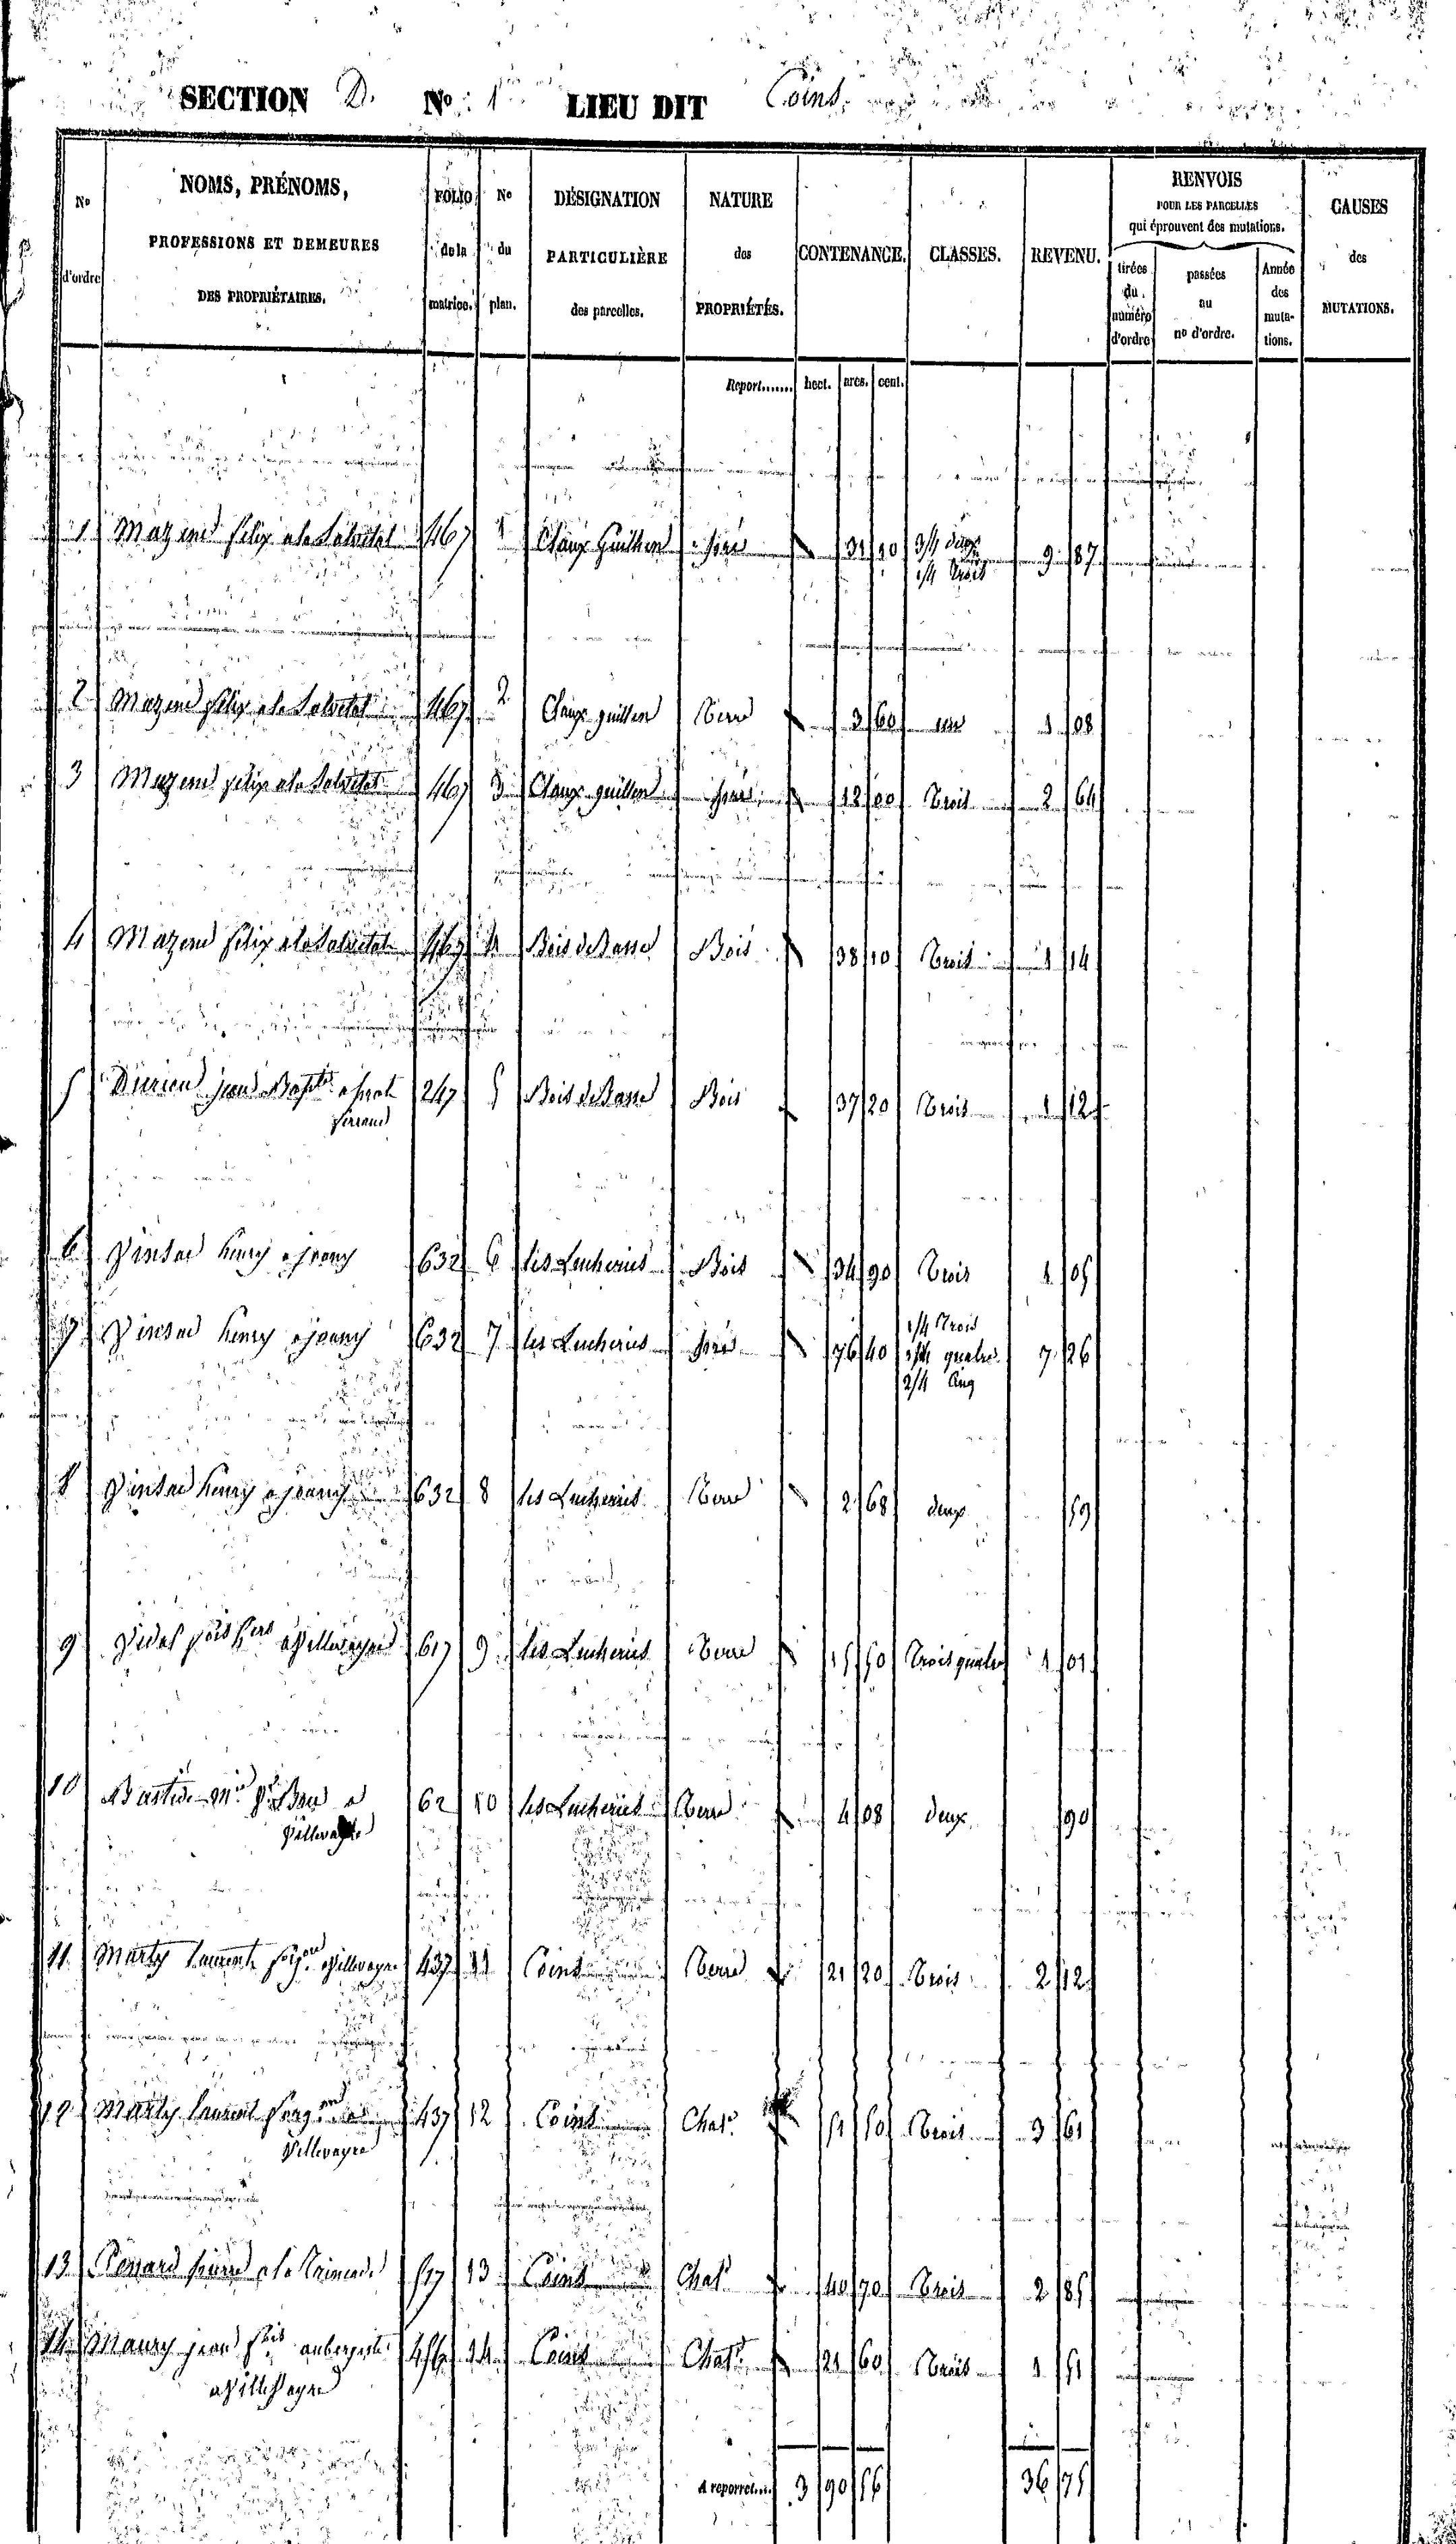 SECTION D. No 1 LIEU DIT Coins.
No d'ordre
NOMS, PRÉNOMS, PROFESSIONS ET DEMEURES DES PROPRIÉTAIRES.
FOLIO de la matrice.
No du plan.
DÉSIGNATION PARTICULIÈRE des parcelles.
NATURE des PROPRIÉTÉS.
CONTENANCE.
CLASSES.
REVENU.
RENVOIS POUR LES PARCELLES qui éprouvent des mutations.
tirées du numéro d'ordre
passées au no d'ordre.
Année des mutations.
CAUSES des MUTATIONS.
Report....... hect. ares. cent.
1 Mazend felix a la Salvetat 467 1 Claux Guillen pré 31 10 3/4 deux 9 87
1/4 Trois
2 Mazend felix a la Salvetat 467 2 Claux guillen Terre 3 60 une 1 08
3 Mazend felix a la Salvetat 467 3 Claux guillen pré 12 00 Trois 2 64
4 Mazend felix a la Salvetat 467 4 Bois de Basse Bois 38 10 Trois 1 14
5 jean Bapte 247 5 Bois de Basse Bois 37 20 Trois 1 12
6 henry 632 6 les Bois 34 90 Trois 1 05
7 henry 632 7 les pré 76 40 1/4 Trois 7 26
1/4 quatre
2/4 Cinq
8 henry 632 8 les Terre 2 68 deux 59
9 Vidal 617 9 les Terre 15 50 Trois quatre 1 01
10 Bastide 62 10 les Terre 4 08 deux 90
11 Marty Laurent Villevayre 437 11 Coins Terre 21 20 Trois 2 12
12 Marty Laurent 437 12 Coins Chat. 51 50 Trois 3 61
Villevayre
13 pierre a la 517 13 Coins Chat. 40 70 Trois 2 85
14 Maury jean fois aubergiste 14 Coins Chat. 21 60 Trois 1 51
a Villevayre
A reporter.... 3 90 56 36 75